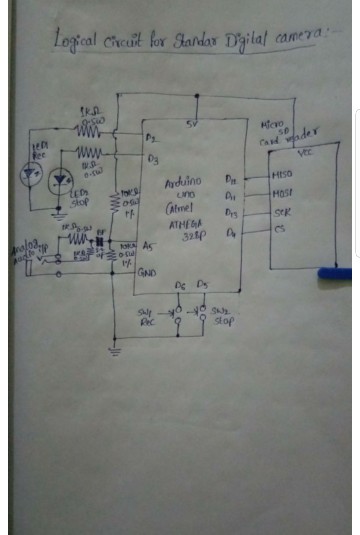 Logical circuit for Standar Digital camera:-
1KΩ
0.5W
LED1
Rec
1KΩ
0.5W
LED2
Stop
D2
D3
5V
Micro
SD
Card reader
VCC
Arduino
uno
(Atmel
ATMEGA
328P
D12
MISO
D11
MOSI
D13
SCK
D4
CS
10KΩ
0.5W
1%
10KΩ
0.5W
1%
Analog
Audio I/P
A5
GND
D6
D5
SW1
Rec
SW2
Stop